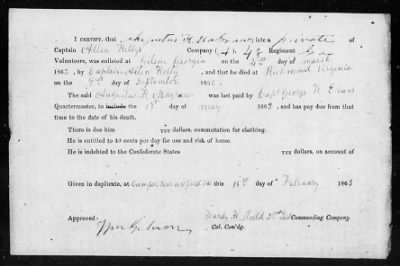 I CERTIFY, that Augustus H. late a Private of
Captain Allen Kelly's Company ( ), 4 Regiment Ga
Volunteers, was enlisted at Georgia on the 4th day of March
1862, by Captain Allen Kelly, and that he died at Richmond Virginia
on the 9th day of September 1862.
The said Augustus H. was last paid by Capt George W Evans
Quartermaster, to include the 1st day of May 1862, and has pay due from that
time to the date of his death.
There is due him dollars, commutation for clothing.
He is entitled to 40 cents per day for use and risk of horse.
He is indebted to the Confederate States dollars, on account of
Given in duplicate, at Camp Crawford this 18th day of February 1863
Approved: Hardy H. 2nd Commanding Company
Wm Gibson Col. Com'dg.